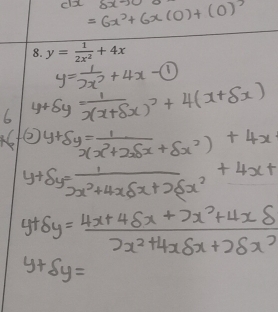 = 6x² + 6x(0) + (0)²
8. y = 1/2x² + 4x
y = 1/2x² + 4x - ①
y + δy = 1/2(x+δx)² + 4(x+δx)
② y + δy = 1/2(x²+2xδx+δx²) + 4x
y + δy = 1/2x²+4xδx+2δx² + 4x +
y + δy = 4x + 4δx + 2x² + 4xδ / 2x² + 4xδx + 2δx²
y + δy =